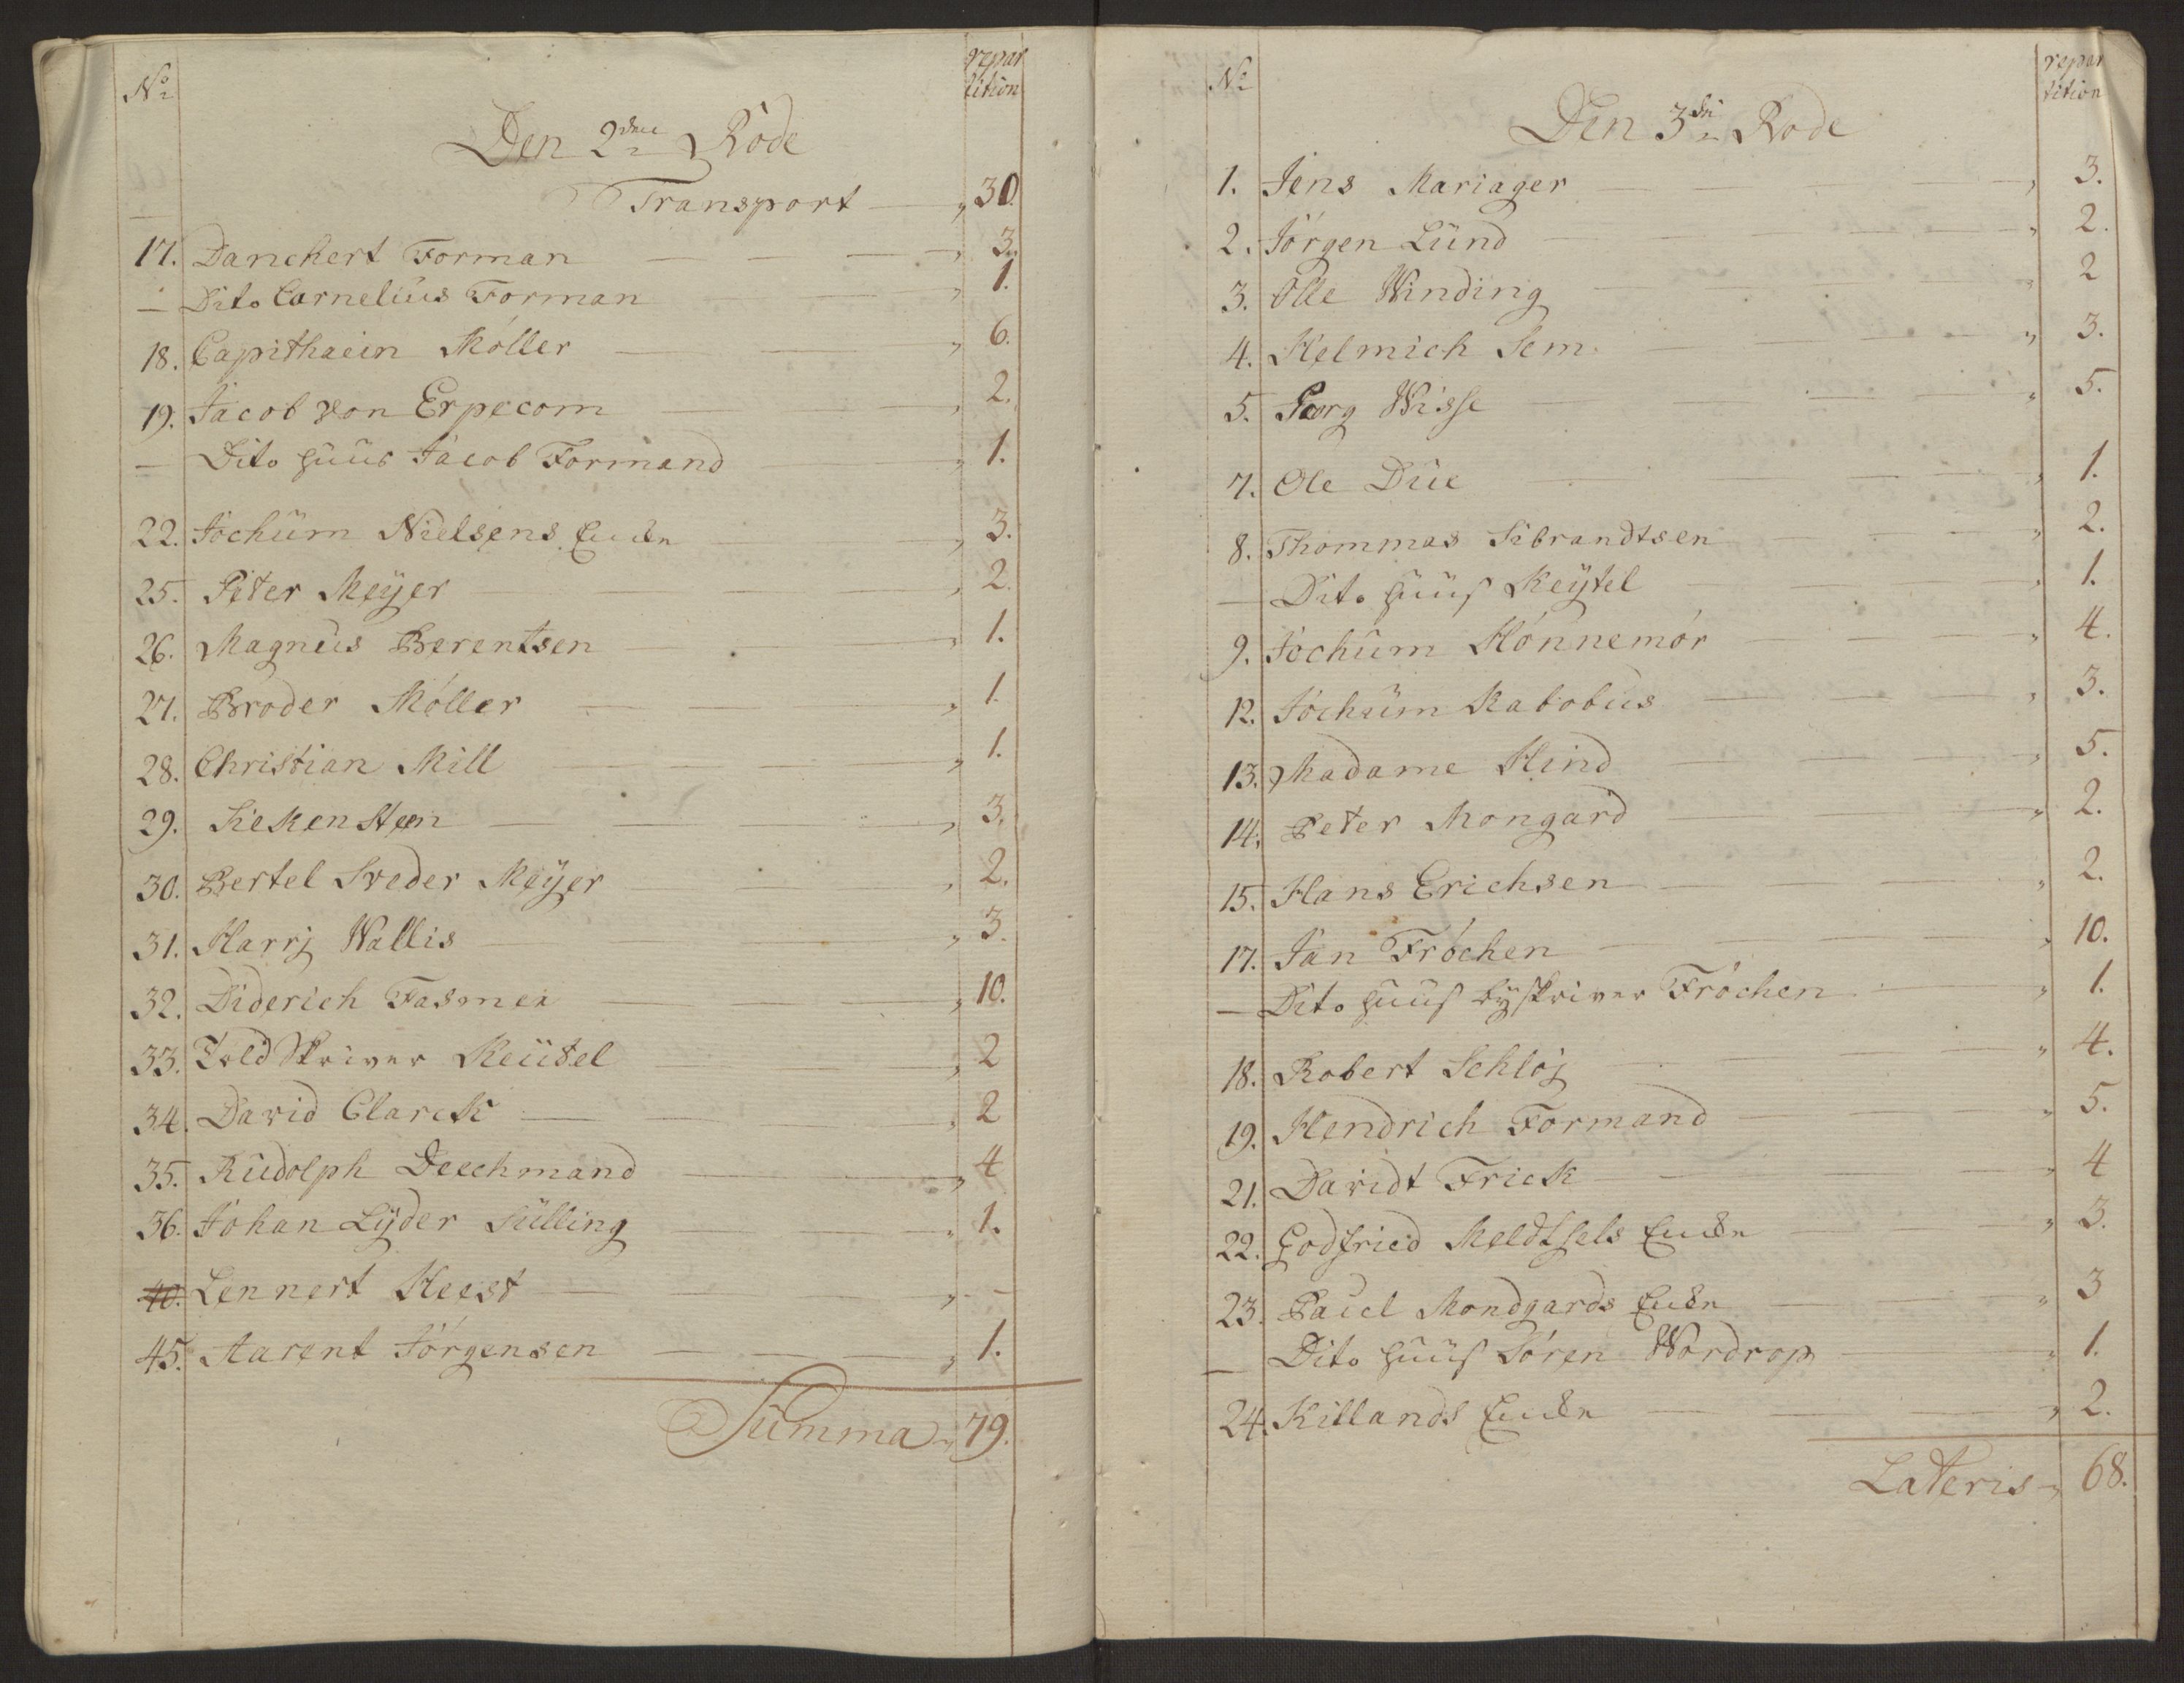 No
repar
tition
Den 2den Rode
Transport — „ 30.
17. Danckert Forman — „ 3.
— Dito Cornelius Forman — „ 1.
18. Capithaein Möller — „ 6.
19. Jacob von Erpecom — „ 2.
— Dito huus Jacob Formand — „ 1.
22. Jochum Nielsens Encke — „ 3.
25. Peter Meÿer — „ 2.
26. Magnus Berentsen — „ 1.
27. Broder Möller — „ 1.
28. Christian Mill — „ 1.
29. Siekensteen — „ 3.
30. Bertel Sveder Meÿer — „ 2.
31. Harrj Wallis — „ 3.
32. Diderich Fasmer — „ 10.
33. Told Skriver Keütel — „ 2
34. David Clarck — „ 2
35. Rudolph Deechmand — „ 4
36. Johan Lÿder Sülling — „ 1.
40. Lennert Heest — „ –
45. Aarent Jörgensen — „ 1.
Summa „ 79.
No
repar
tition
Den 3die Rode
1. Jens Mariager — „ 3.
2. Jörgen Lund — „ 2.
3. Olle Winding — „ 2
4. Helmich Sem — „ 3.
5. Georg Wisse — „ 5.
7. Ole Due — „ 1.
8. Thommas Sibrandtsen — „ 2.
— Dito huus Keÿtel — „ 1.
9. Jochum Hönnemör — „ 4.
12. Jochum Kabobus — „ 3.
13. Madame Hind — „ 5.
14. Peter Mongard — „ 2.
15. Hans Erichsen — „ 2.
17. Jan Fröchen — „ 10.
— Dito huus bÿskriver Fröchen — „ 1.
18. Robert Schlöj — „ 4.
19. Hendrich Formand — „ 5.
21. Davidt Frick — „ 4
22. Godfried Meldtsels Encke — „ 3.
23. Pauel Mondgards Encke — „ 3
— Dito huus Sören Wordrop — „ 1.
24. Killands Encke — „ 2.
Lateris „ 68.